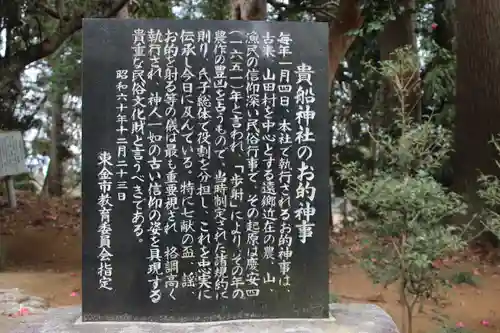 貴船神社のお的神事
毎年一月四日、本社で執行されるお的神事は、
古来、山田村を中心とする遠郷近在の農、山、
漁民の信仰深い行事で、その起原は慶安四
(一六五一)年と言われ、「歩射」によりその年の
農作の豊凶を占うもので、当時制定された諸規約に
則り、氏子総体で役割を分担し、これを忠実に
伝承し今日に及んでいる。特に七献の盃
お的を射る等の儀は最も重要視され、格調高く
執行され、神人一如の古い信仰の姿を具現する
貴重な民俗文化財と言うべきである。
昭和六十年十二月二十三日
東金市教育委員会指定